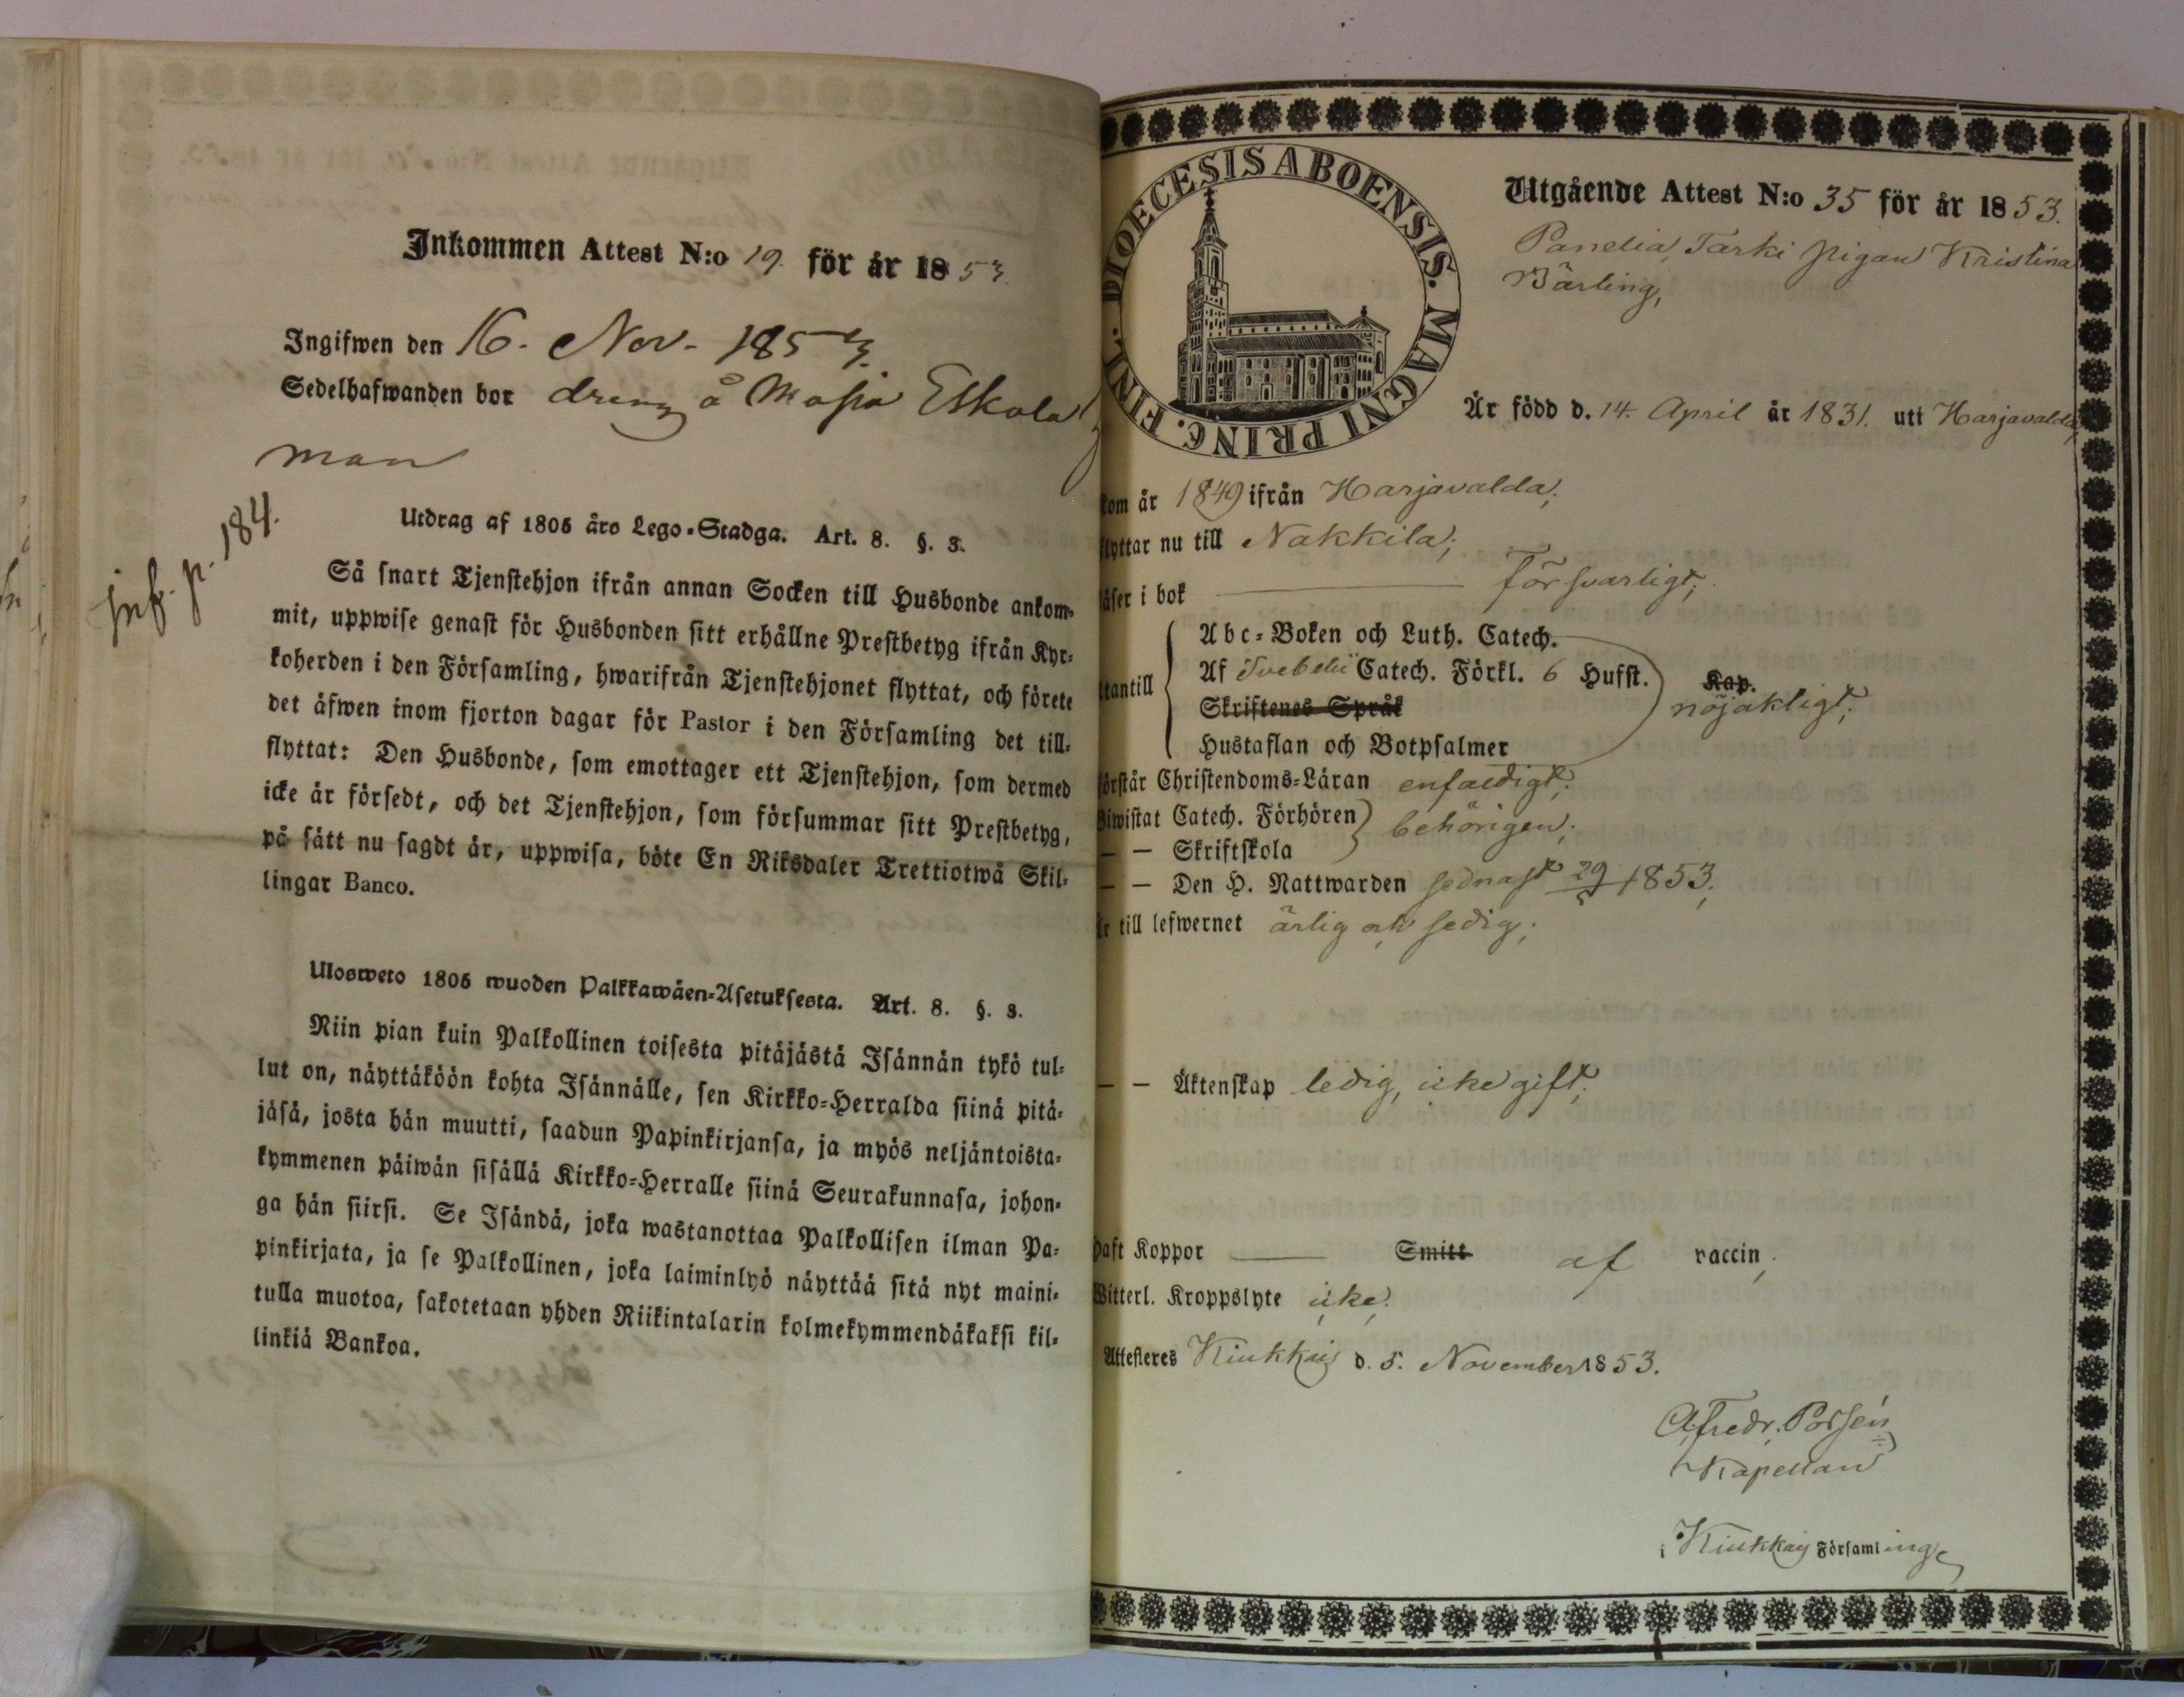 Inkommen Attest N:o 19. för år 1853.
Ingifwen den 16. Nov. 1853.
Sedelhafwanden bor dreng å Masia Eskola
man
inf. p. 184.
Utdrag af 1805 års Lego-Stadga. Art. 8. §. 3.
Så snart Tjenstehjon ifrån annan Socken till Husbonde ankom-
mit, uppwise genast för Husbonden sitt erhållne Prestbetyg ifrån Kyr-
koherden i den Församling, hwarifrån Tjenstehjonet flyttat, och förete
det äfwen inom fjorton dagar för Pastor i den Församling det till-
flyttat: Den Husbonde, som emottager ett Tjenstehjon, som dermed
icke är försedt, och det Tjenstehjon, som försummar sitt Prestbetyg,
på sätt nu sagdt är, uppwisa, böte En Riksdaler Trettiotwå Skil-
lingar Banco.
Ulosweto 1805 wuoden Palkkawäen-Asetuksesta. Art. 8. §. 3.
Niin pian kuin Palkollinen toisesta pitäjästä Isännän tykö tul-
lut on, näyttäköön kohta Isännälle, sen Kirkko-Herralda siinä pitä-
jäsä, josta hän muutti, saadun Papinkirjansa, ja myös neljäntoista-
kymmenen päiwän sisällä Kirkko-Herralle siinä Seurakunnasa, johon-
ga hän siirsi. Se Isändä, joka wastanottaa Palkollisen ilman Pa-
pinkirjata, ja se Palkollinen, joka laiminlyö näyttää sitä nyt maini-
tulla muotoa, sakotetaan yhden Riikintalarin kolmekymmendäkaksi kil-
linkiä Bankoa.
DIOECESIS ABOENSIS. MAGNI PRINC. FINL.
Utgående Attest N:o 35 för år 1853.
Panelia, Tarki pigan Kristina
Bärling,
Är född d. 14. April år 1831. uti Harjavalda,
kom år 1849 ifrån Harjavalda;
flyttar nu till Nakkila;
läser i bok försvarligt;
utantill
Abc-Boken och Luth. Catech.
Af Svebelii Catech. Förkl. 6 Hufst. Kap.
Skriftenes Språk nöjaktligt;
Hustaflan och Botpsalmer
förstår Christendoms-Läran enfaldigt;
Biwistat Catech. Förhören behörigen;
— — Skriftskola
— — Den H. Nattwarden sednast 29/5 1853;
Är till lefwernet ärlig och sedig;
— — Äktenskap ledig, icke gift;
haft Koppor Smitt af vaccin;
Witterl. Kroppslyte icke;
Attesteres Kiukkais d. 5. November 1853.
A. Fredr. Polsén
Kapellan
i Kiukkais Församling